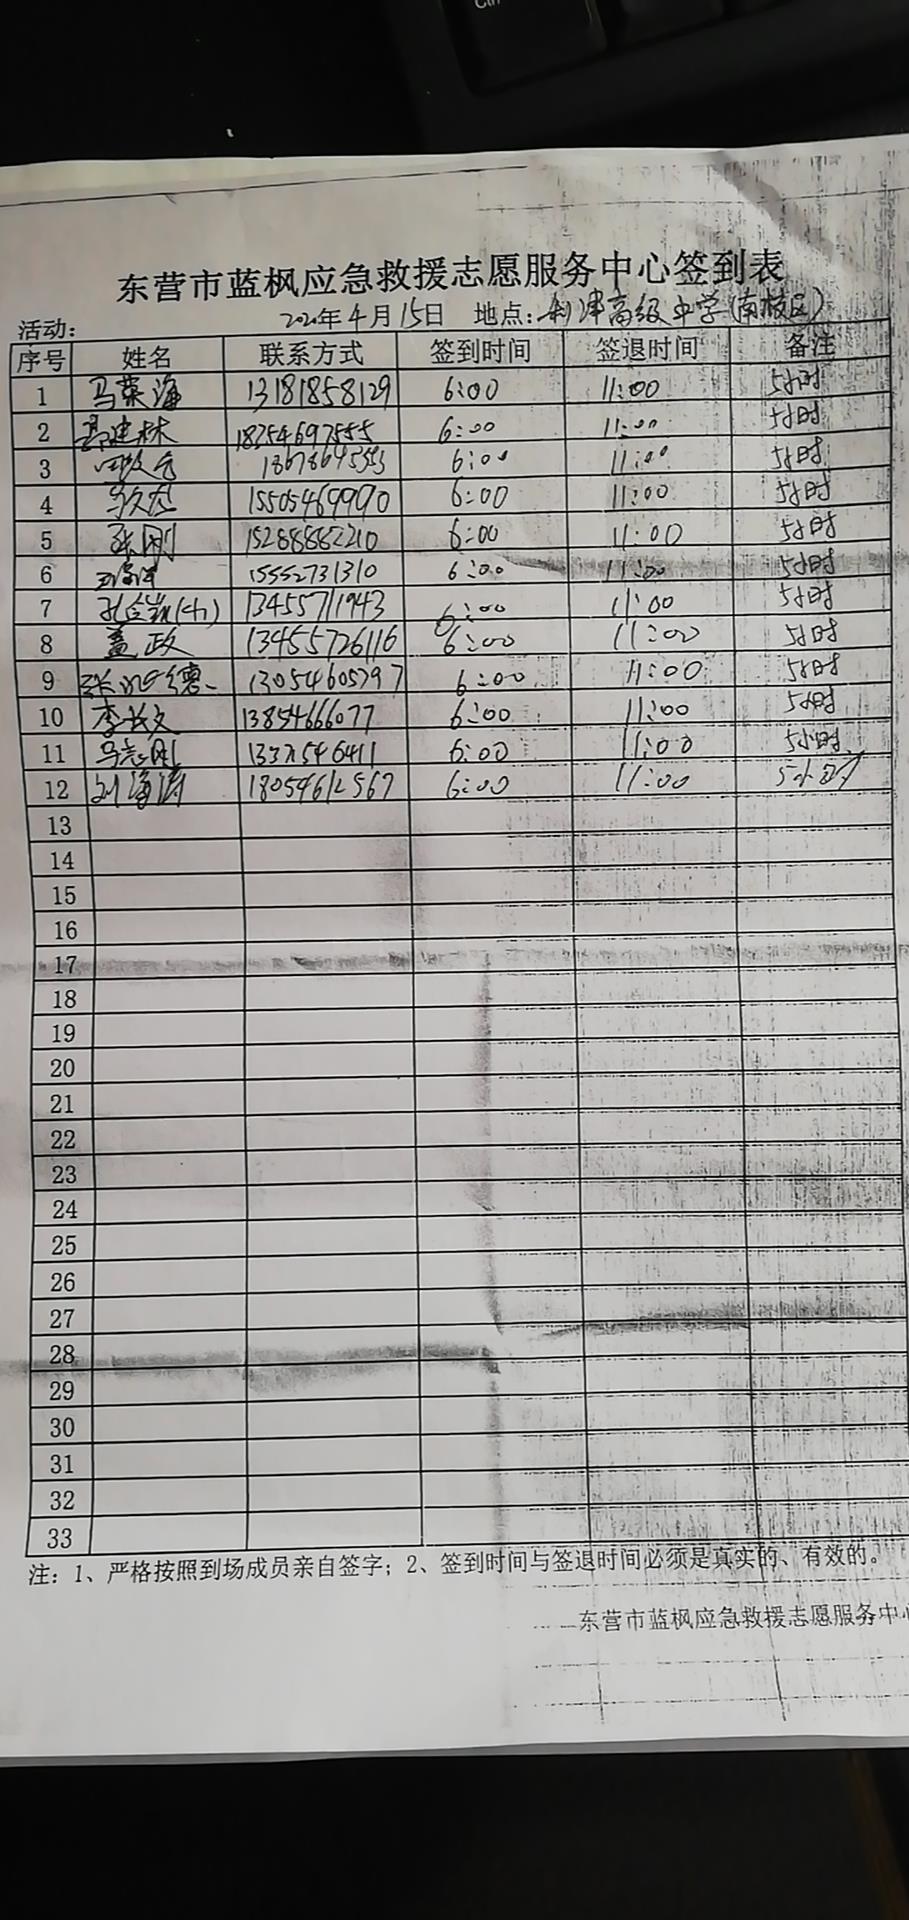 东营市蓝枫应急救援志愿服务中心签到表
活动： 2020年4月15日 地点：利津高级中学(南校区)
序号 姓名 联系方式 签到时间 签退时间 备注
1 马荣海 13181858129 6:00 11:00 5小时
2 高建林 18254697555 6:00 11:00 5小时
3 6:00 11:00 5小时
4 15505469990 6:00 11:00 5小时
5 张刚 15288882210 6:00 11:00 5小时
6 15552731310 6:00 11:00 5小时
7 13455711943 6:00 11:00 5小时
8 盖政 13455726116 6:00 11:00 5小时
9 13054605797 6:00 11:00 5小时
10 李长文 13854666077 6:00 11:00 5小时
11 马志刚 6:00 11:00 5小时
12 刘海涛 18054612567 6:00 11:00 5小时
13
14
15
16
17
18
19
20
21
22
23
24
25
26
27
28
29
30
31
32
33
注：1、严格按照到场成员亲自签字；2、签到时间与签退时间必须是真实的、有效的。
东营市蓝枫应急救援志愿服务中心